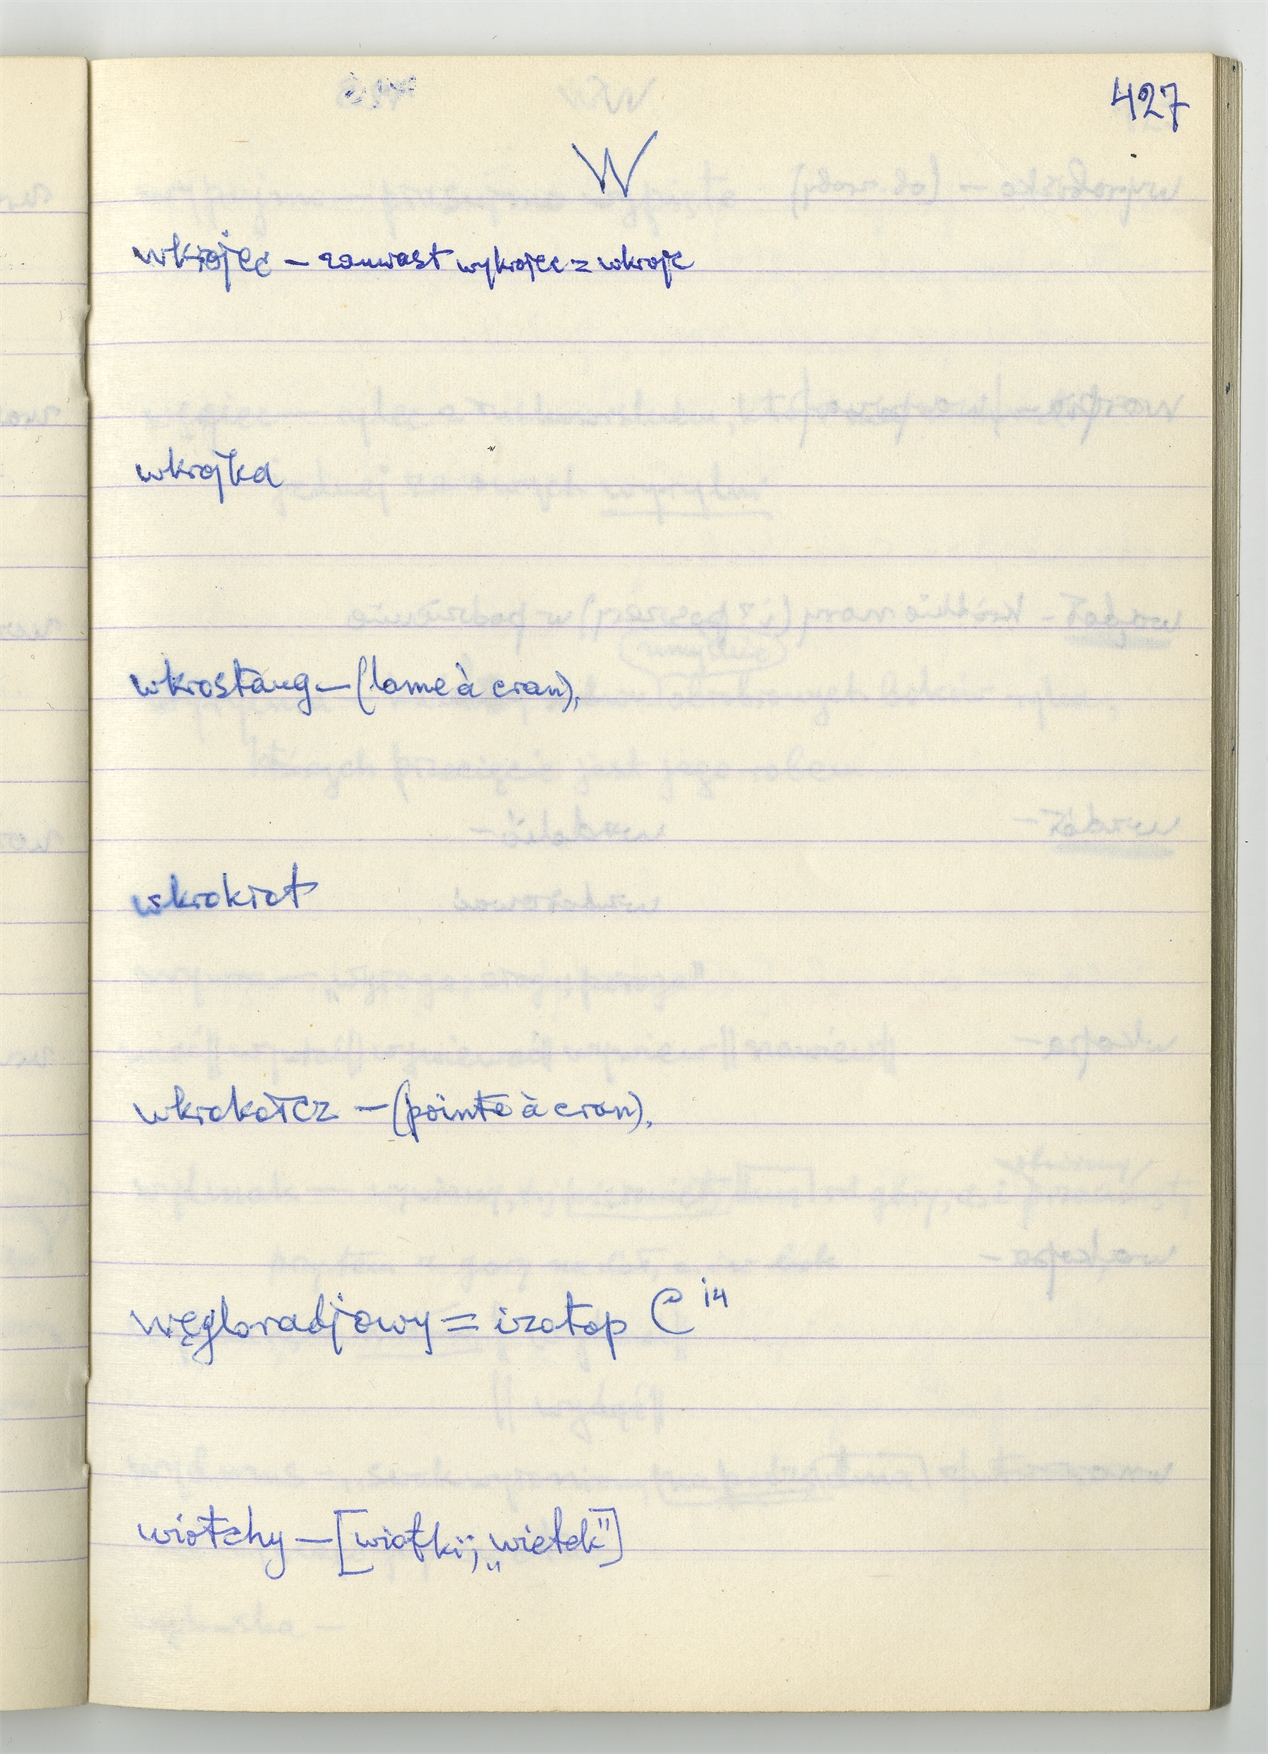 427
W
wkrojec – zamiast wykrojec z wkroje
wkrojka
wkrostang – (lame à cran),
wkrokrot
wkrokołcz – (pointe à cran),
węgloradjowy = izotop C 14
wiotchy – [wiotki; „wietek"]